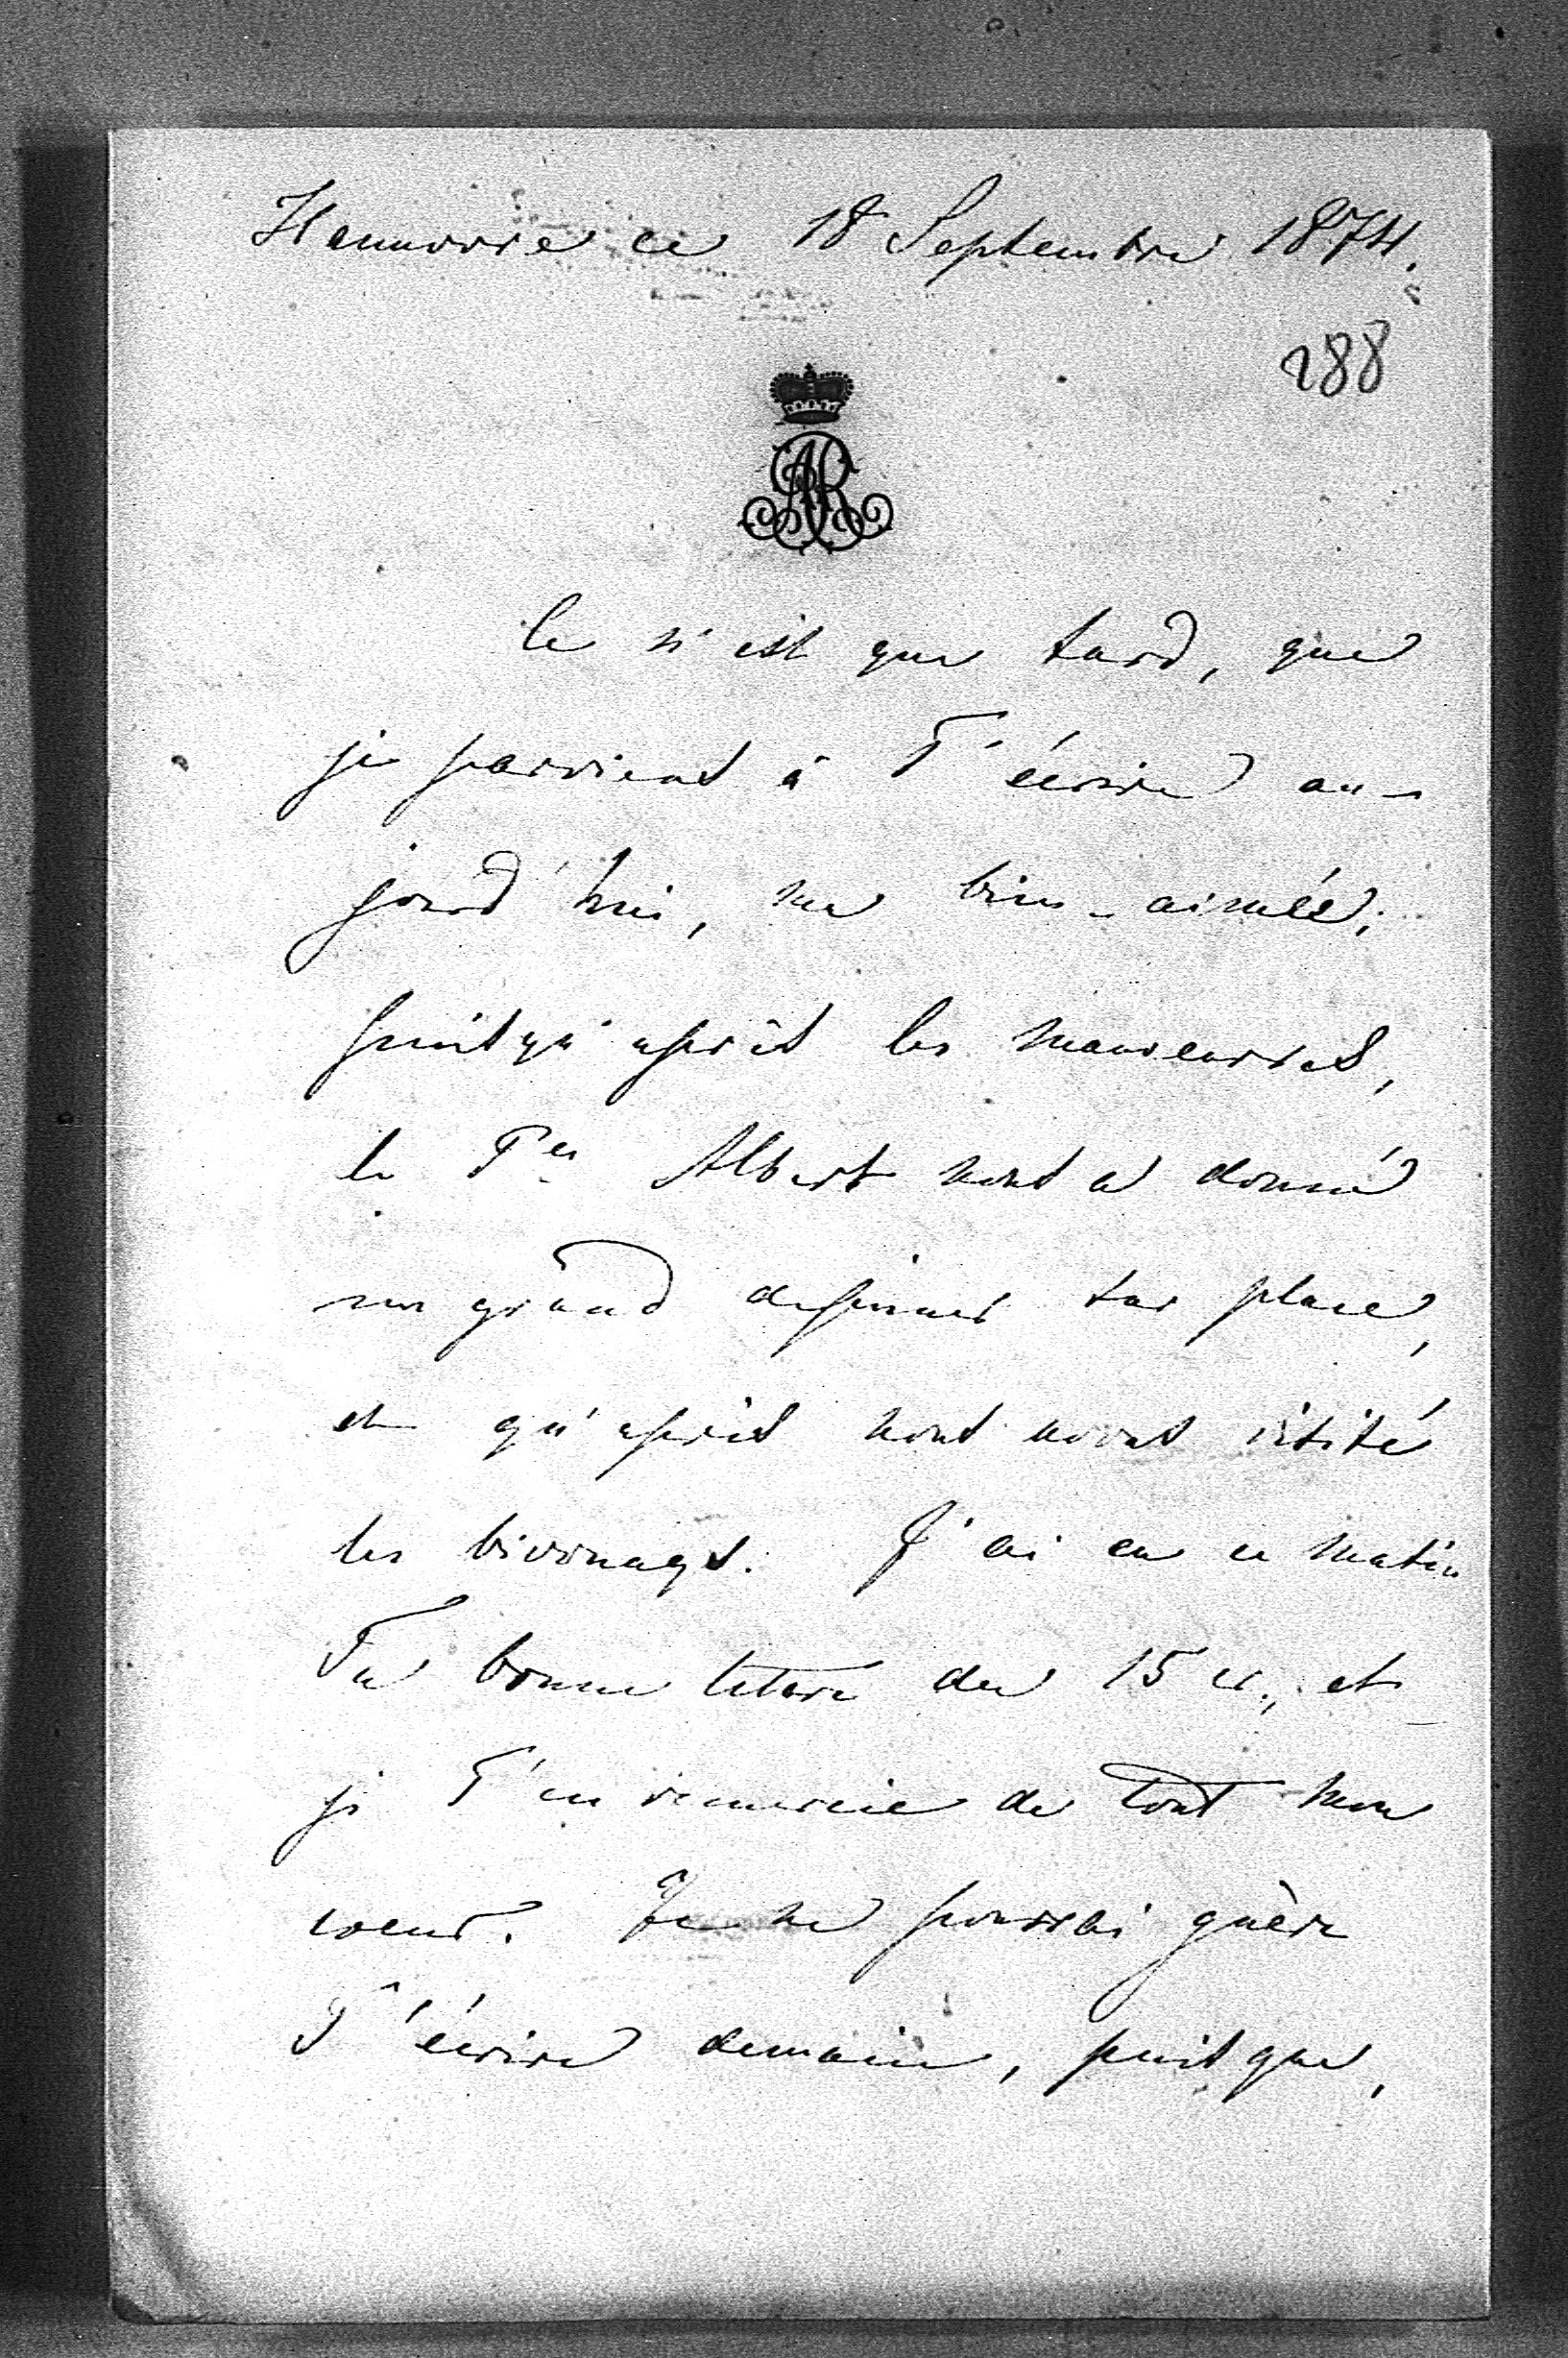 Hannovre ce 18 Septembre 1874.
288
AR
Ce n'est que tard, que
je parviens à T'écrire au-
jourd'hui, ma bien-aimée,
puisqu'après les manoeuvres,
le Pce Albert nous a donné
un grand dejeuner sur place,
et qu'après nous avons visité
les bivouaqs. J'ai eu ce matin
Ta bonne lettre du 15 c., et
je T'en remercie de tout mon
coeur. Je ne pourrai guère
T'écrire demain, puisque,